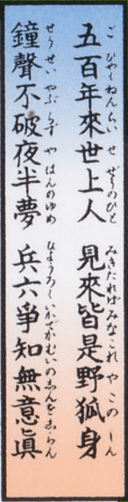 ご ひやくねんらい せ ぜうのひと みきたればみなこれ やこの しん
五百年來世上人 見來皆是野狐身
せうせい やぶらず やはんのゆめ ひようろくいかでかむいのしんをしらん
鐘聲不破夜半夢 兵六爭知無意眞